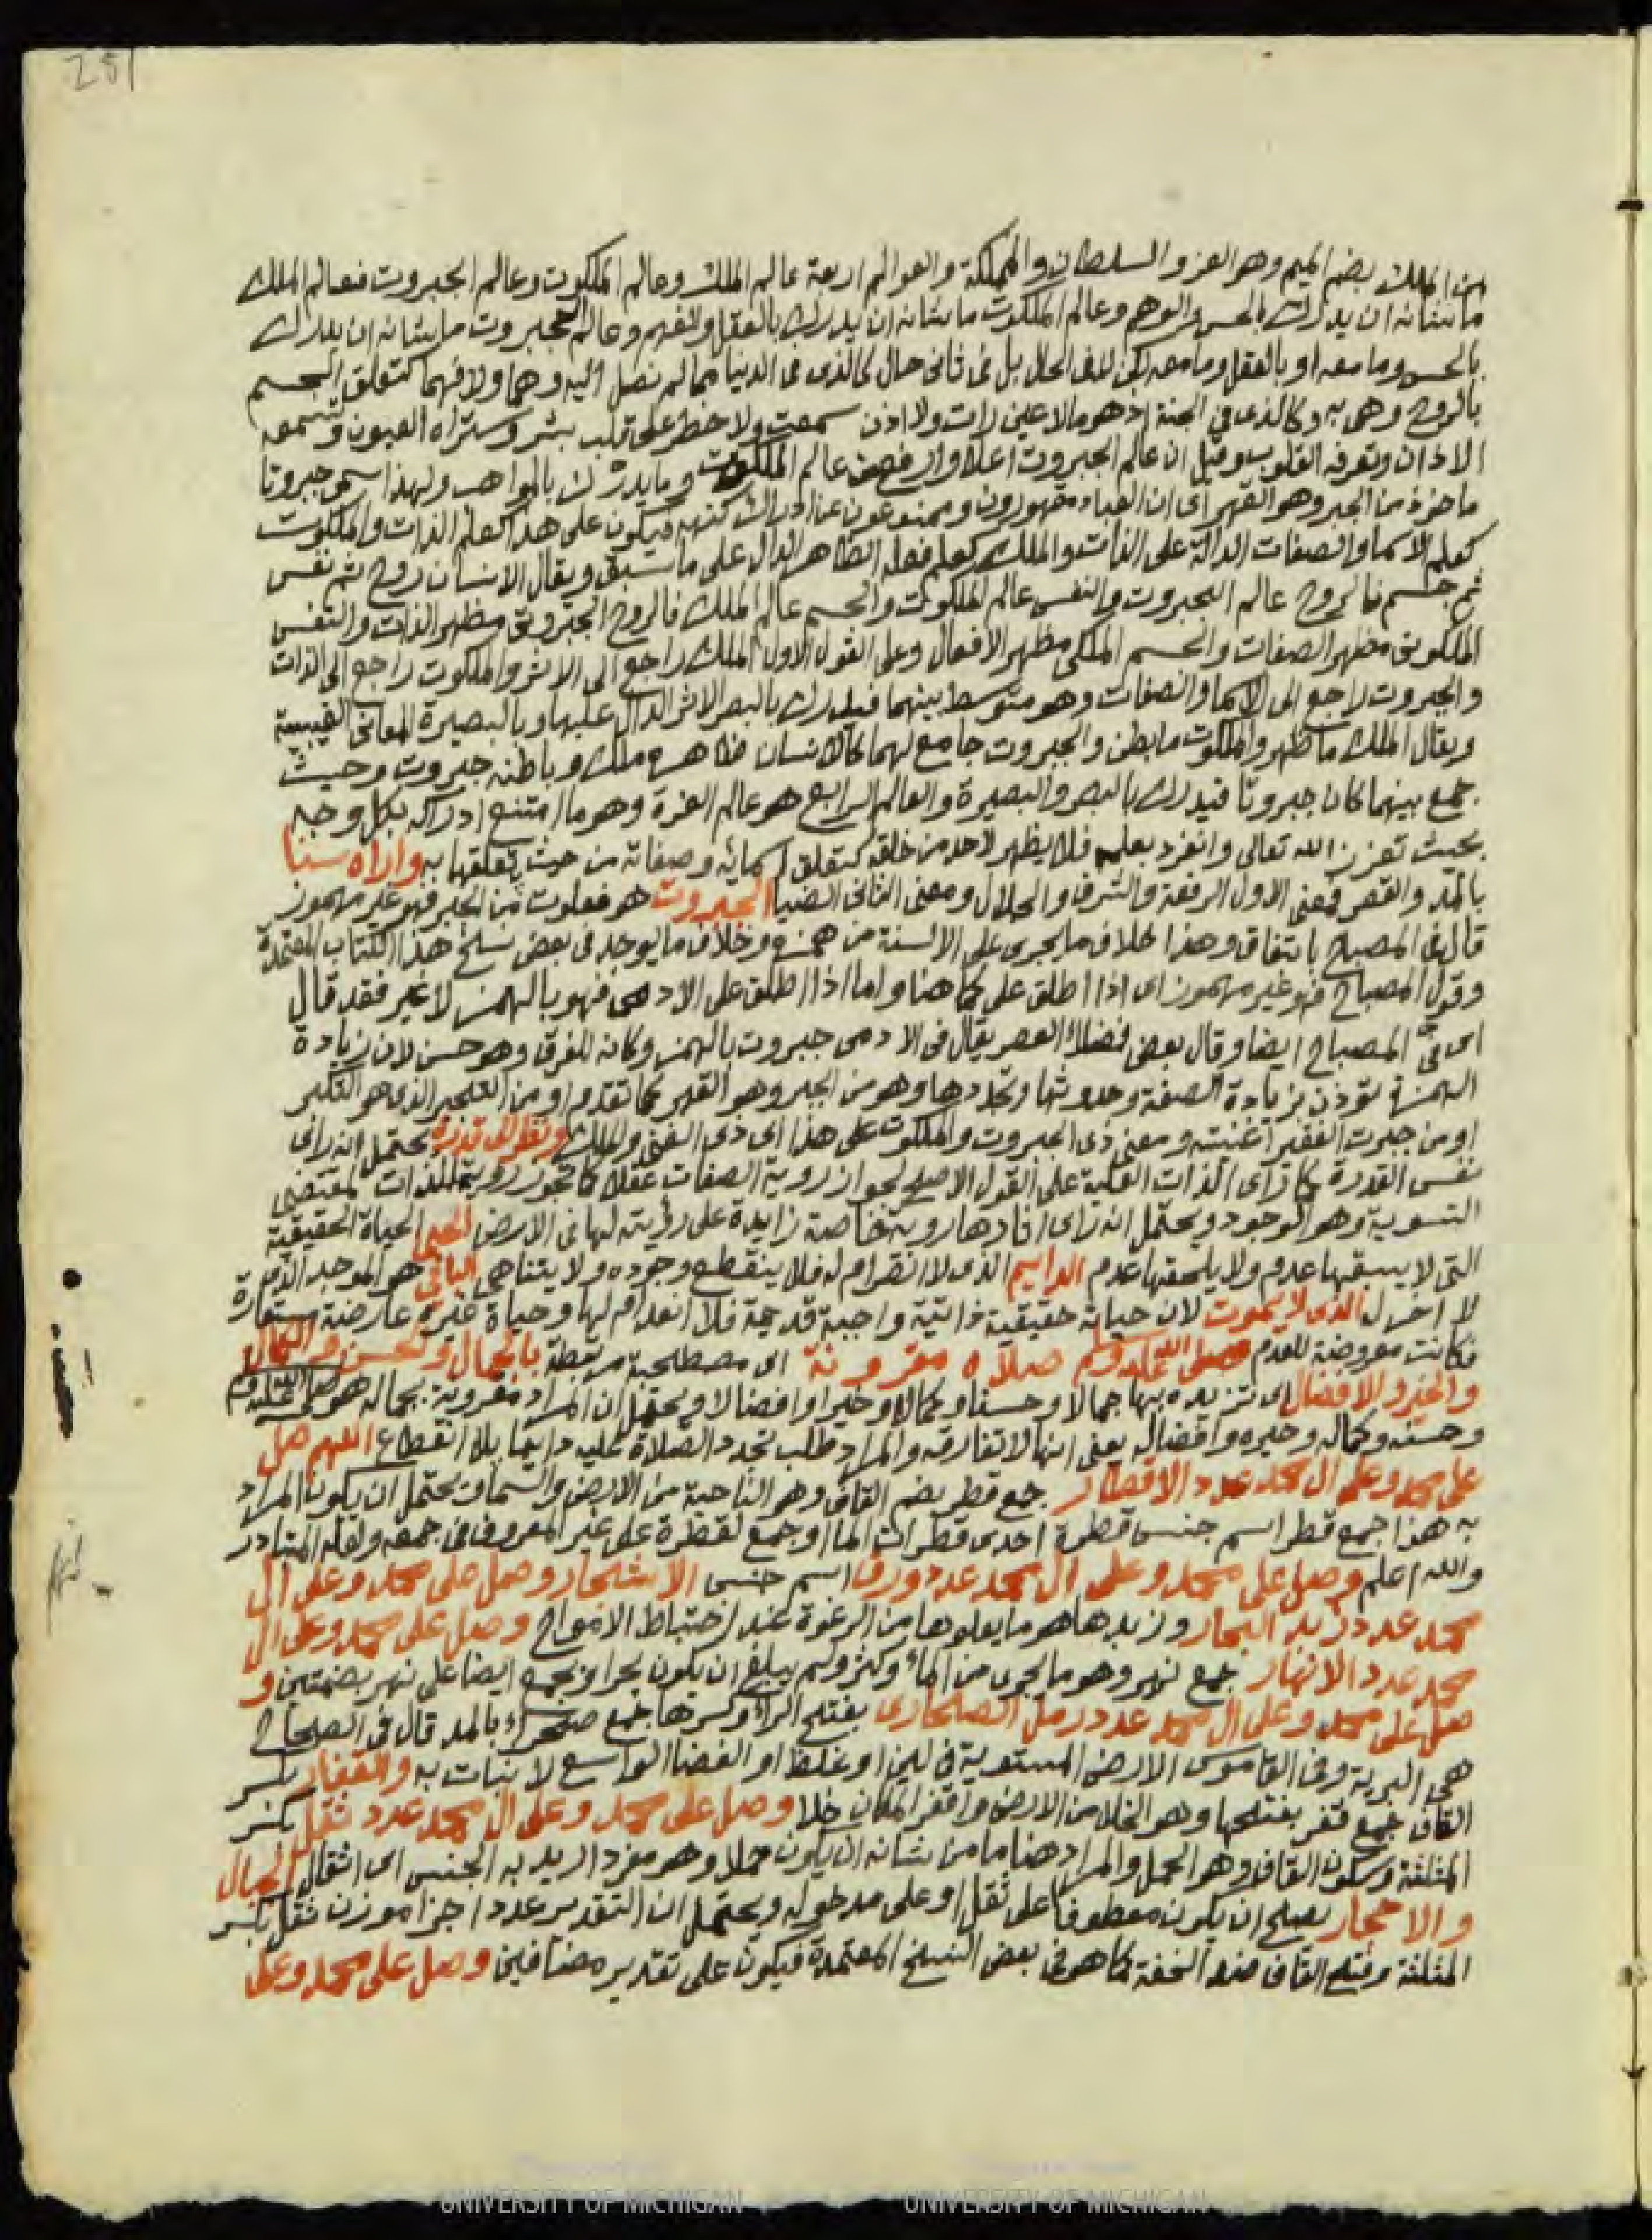 251
من الملك بضم الميم وهو العز والسلطان والمملكة والعوالم اربعة عالم الملك وعالم الملكوت وعالم الجبروت فعالم الملك
ما شانه ان يدرك بالحس والوهم وعالم الملكوت ما شانه ان يدرك بالعقل والفهم وعالم الجبروت ما شانه ان يدرك
بالحس وما معه او بالعقل وما معه لكن لا في الحال بل في ثاني حال كالذي في الدنيا مما لم نصل اليه وهما ولا فهما كتعلق الجسم
بالروح وهي به وكالذي في الجنة اذ هو مالا عين رات ولا اذن سمعت ولا خطر على قلب بشر وستراه العيون وتسمعه
الاذان وتعرفه القلوب وقيل ان عالم الجبروت اعلا وارفع من عالم الملكوت وما يدرك بالمواهب ولهذا سمي جبروتا
ماخوذ من الجبر وهو القهر اي ان العباد مقهورون وممنوعون عن ادراك كنهه فيكون على هذا كعلم الذات والملكوت
كعلم الاسما والصفات الدالة على الذات والملك كعلم فعله الظاهر الدال على ما سبق ويقال الانسان روح ثم نفس
ثم جسم فالروح عالم الجبروت والنفس عالم الملكوت والجسم عالم الملك فالروح الجبروتي مظهر الذات والنفس
الملكوتي مظهر الصفات والجسم الملكي مظهر الافعال وعلى القول الاول الملك راجع الى الاثر والملكوت راجع الى الذات
والجبروت راجع الى الاسما والصفات وهو متوسط بينهما فيدرك بالبصر الاثر الدال عليها وبالبصيرة المعاني الغيبية
ويقال الملك ما ظهر والملكوت ما بطن والجبروت جامع لهما كالانسان ظاهره ملك وباطنه جبروت وحيث
جمع بينهما كان جبروتا فيدرك بالبصر والبصيرة والعالم الرابع هو عالم العزة وهو ما امتنع ادراكه بكل وجه
بحيث تعزز الله تعالى وانفرد بعلمه فلا يظهر لاحد من خلقه كتعلق اسمائه وصفاته من حيث تعلقها به واراه سنا
بالمد والقصر فمعنى الاول الرفعة والشرف والجلال ومعنى الثاني الضيا الجبروت هو فعلوت من الجبر فهو غير مهموز
قال في المصباح باتفاق وهذا خلاف ما يجري على الالسنة من همزه وخلاف ما يوجد في بعض نسخ هذا الكتاب المعتمدة
وقول المصباح فهو غير مهموز اي اذا اطلق على كما هنا واما اذا اطلق على الادمي فهو بالهمز لا غير فقد قال
اي في المصباح ايضا وقال بعض فضلاء العصر يقال في الادمي جبروت بالهمز وكانه للفرق وهو حسن لان زيادة
الهمزة تؤذن بزيادة الصفة وحدوثها وتجددها وهو من الجبر وهو القهر كما تقدم او من التجبر الذي هو التكبر
او من جبرت الفقير اغنيته ومعنى ذي الجبروت والملكوت على هذا اي ذي الغنى والملك ونظر الى قدرة يحتمل انه راى
نفس القدرة كما راى الذات العلية على القول الاصح لجواز روية الصفات عقلا كما تجوز روية الذات لمقتضى
التسوية وهو الوجود ويحتمل انه راى اثارها روية خاصة زايدة على رؤيته لها في الارض الحي الحياة الحقيقية
التي لا يسبقها عدم ولا يلحقها عدم الدايم الذي لا انصرام له فلا ينقطع وجوده ولا يتناهى الباقي هو الموجد الذي
لا اخر له الذي لا يموت لان حياته حقيقية ذاتية واجبة قديمة فلا انعدام لها وحياة غيره عارضة مستعارة
فكانت معروضة للعدم وصلى الله عليه وسلم صلاه مقرونة اي مصطحبة مرتبطة بالجمال والحسن والكمال
والخير والافضال اي تزيده بها جمالا وحسنا وكمالا وخيرا وافضالا ويحتمل ان المراد مقرونة بجماله هو صلى الله عليه وسلم
وحسنه وكماله وخيره وافضاله يعني انها لا تفارقه والمراد طلب تجدد الصلاة عليه دايما بلا انقطاع اللهم صل
على محمد وعلى ال محمد عدد الاقطار جمع قطر بضم القاف وهو الناحية من الارض والسماء ويحتمل ان يكون المراد
به هذا جمع قطر اسم جنس قطرة احدى قطرات الما او جمع لقطرة على غير المعروف في جمعه ولعله المتبادر
والله اعلم وصل على محمد وعلى ال محمد عدد ورق اسم جنس الاشجار وصل على محمد وعلى ال
محمد عدد زبد البحار وزبدها هو ما يعلوها من الرغوة عند اختباط الامواج وصل على محمد وعلى ال
محمد عدد الانهار جمع نهر وهو ما يجري من الماء وكثر ولم يبلغ ان يكون بحرا ويجمع ايضا على نهر بضمتين و
صل على محمد وعلى ال محمد عدد رمل الصحاري بفتح الراء وكسرها جمع صحراء بالمد قال في الصحاح
هي البرية وفي القاموس الارض المستوية في لين او غلظ او الفضا الواسع لا نبات به والقفار بكسر
القاف جمع قفر بفتحها وهو الخلا من الارض واقفر المكان خلا وصل على محمد وعلى ال محمد عدد ثقل بكسر
المثلثة وسكون القاف وهو الحمل والمراد هنا ما من شانه ان يكون حملا وهو مفرد اريد به الجنس اي اثقال الجبال
والاحجار يصلح ان يكون معطوفا على ثقل او على مدخوله ويحتمل ان التقدير عدد اجزا موزن ثقل بكسر
المثلثة وفتح القاف ضد الخفة كما هو في بعض النسخ المعتمدة فيكون على تقدير مضافين وصل على محمد وعلى
UNIVERSITY OF MICHIGAN UNIVERSITY OF MICHIGAN